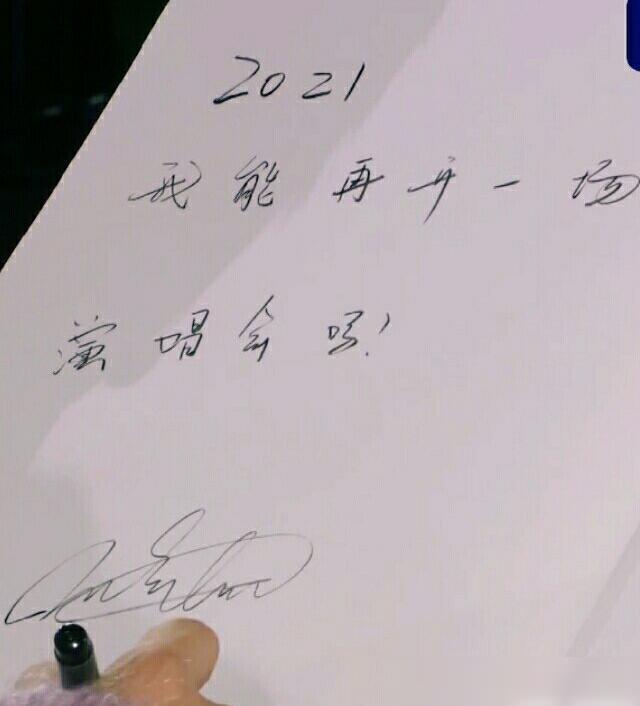 2021
我能再开一场
演唱会吗!